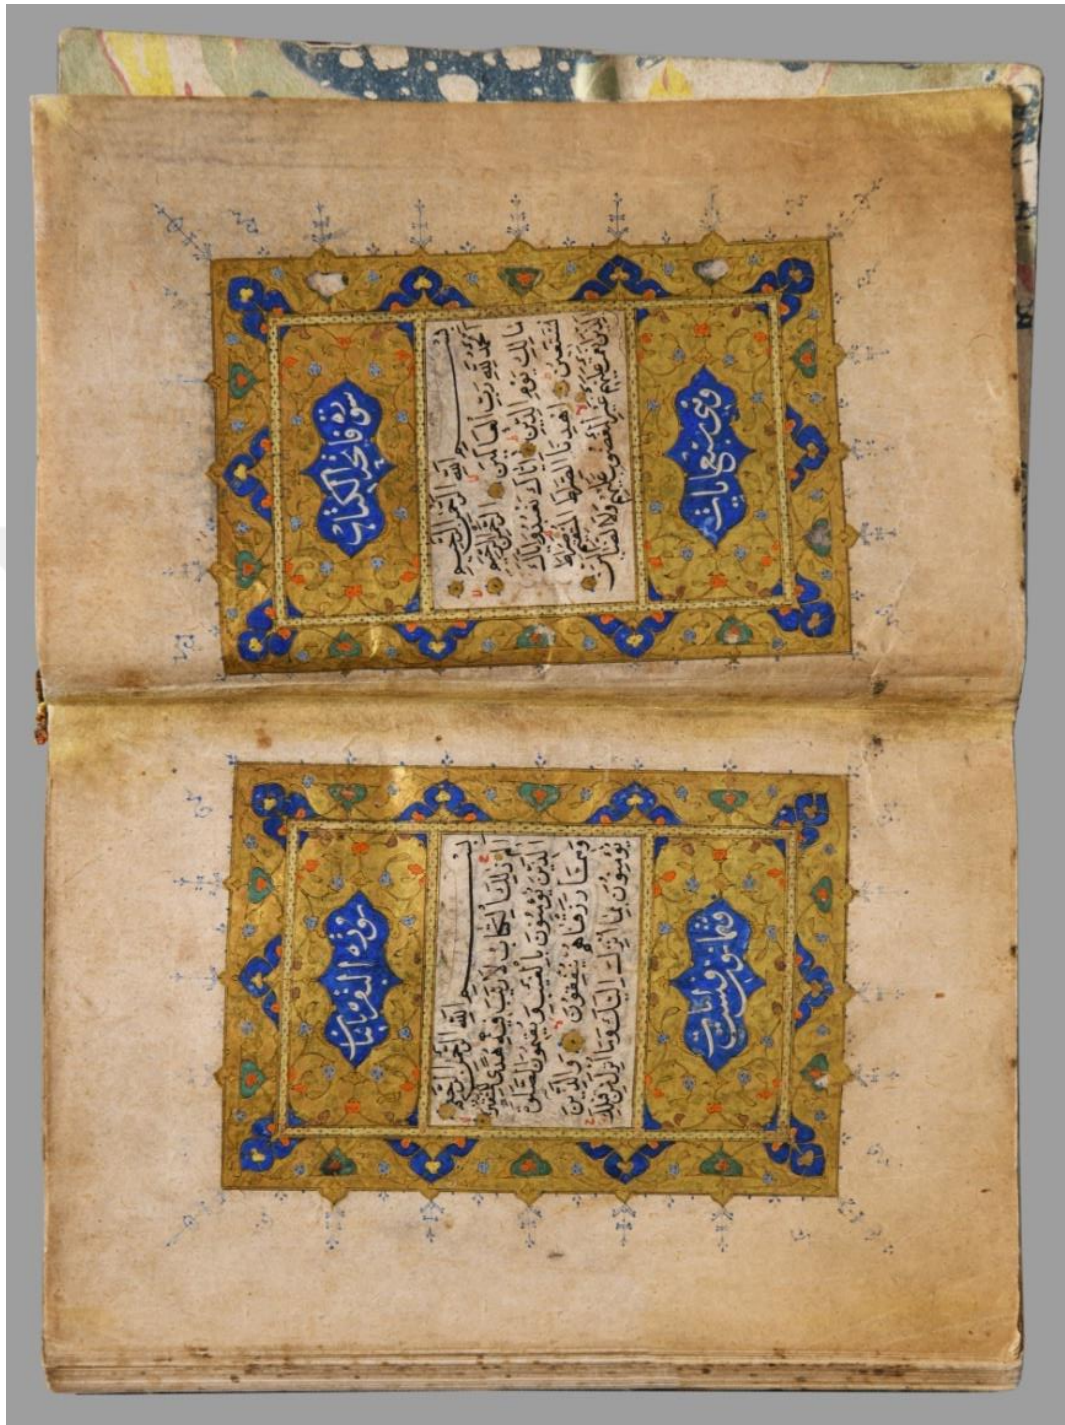 سورة فاتحة الكتاب
بِسْمِ اللهِ الرَّحْمٰنِ الرَّحِيمِ
اَلْحَمْدُ لِلّٰهِ رَبِّ الْعَالَمِينَ الرَّحْمٰنِ الرَّحِيمِ
مَالِكِ يَوْمِ الدِّينِ اِيَّاكَ نَعْبُدُ وَاِيَّاكَ
نَسْتَعِينُ اِهْدِنَا الصِّرَاطَ الْمُسْتَقِيمَ صِرَاطَ
الَّذِينَ اَنْعَمْتَ عَلَيْهِمْ غَيْرِ الْمَغْضُوبِ عَلَيْهِمْ وَلَا الضَّالِّينَ
وهى سبع ايات
سورة البقرة مايتا
بِسْمِ اللهِ الرَّحْمٰنِ الرَّحِيمِ
الم ذٰلِكَ الْكِتَابُ لَا رَيْبَ فِيهِ هُدًى لِلْمُتَّقِينَ
الَّذِينَ يُؤْمِنُونَ بِالْغَيْبِ وَيُقِيمُونَ الصَّلٰوةَ
وَمِمَّا رَزَقْنَاهُمْ يُنْفِقُونَ وَالَّذِينَ
يُؤْمِنُونَ بِمَا اُنْزِلَ اِلَيْكَ وَمَا اُنْزِلَ مِنْ قَبْلِكَ
ايات